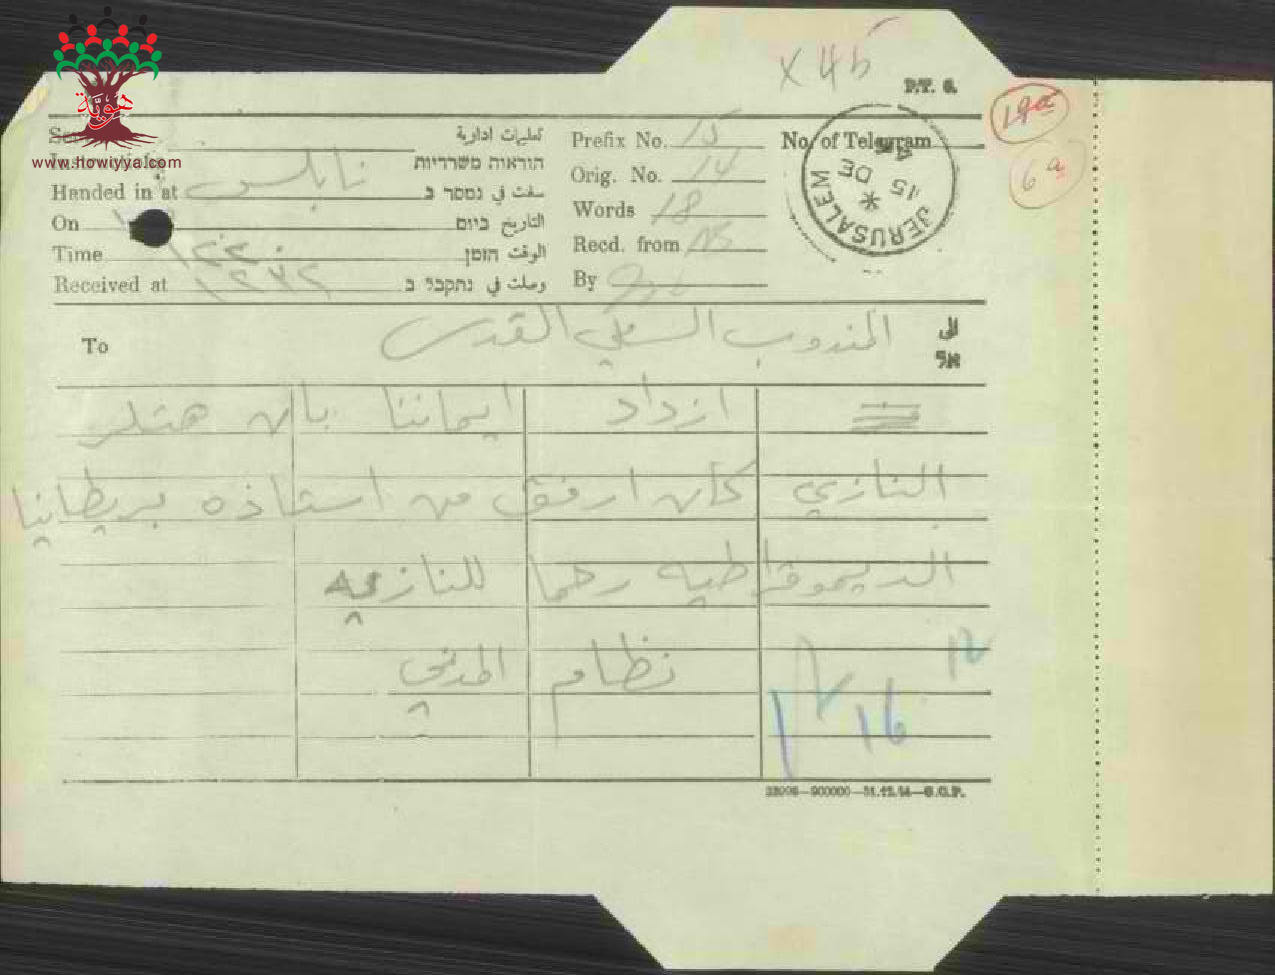 X 45
P.T. 6.
19a
6a
هوية
www.howiyya.com
تعليمات ادارية
הוראות משרדיות
Prefix No. 15
No. of Telegram
Orig. No. 14
Words 18
Recd. from
By
JERUSALEM
15 DE
Handed in at نابلس سلمت في נמסר ב
On التاريخ ביום
Time الوقت הזמן
Received at وصلت في נתקבל ב
To المندوب السامي القدس الى אל
ازداد ايماننا بان هتلر
النازي كان ارفق من استاذه بريطانيا
الديموقراطيه رحما للنازيه
نظام المدني
16